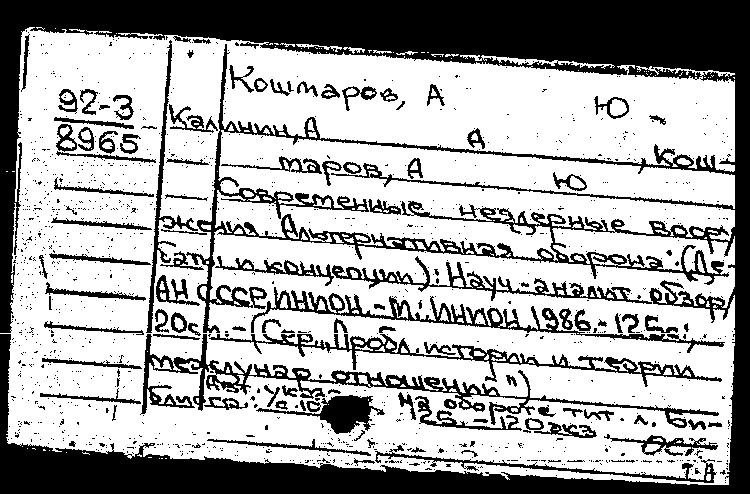 Кошмаров, А Ю
92-3
8965
Калинин, А А , Кош-
маров, А Ю
Современные неядерные воору
жения. Альтернативная оборона: (Де-
баты и концепции): Науч.-аналит. обзор/
АН СССР, ИНИОН. - М.: ИНИОН, 1986. - 125с.;
20см. - (Сер. "Пробл. истории и теории
междунар. отношений")
Авт. указ.
на обороте тит. л. Би-
блиогр.: с.
125. - 120экз.